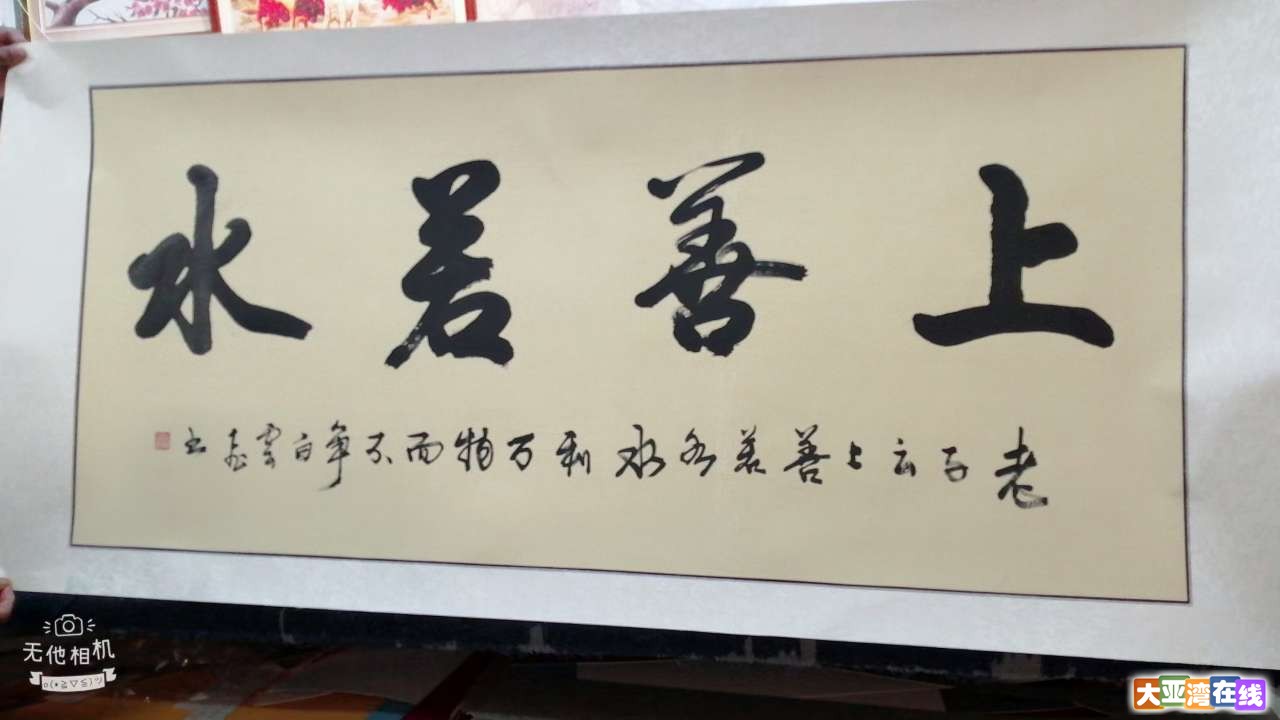 上善若水
老子云上善若水水利万物而不争白雲书
无他相机
大亚湾在线